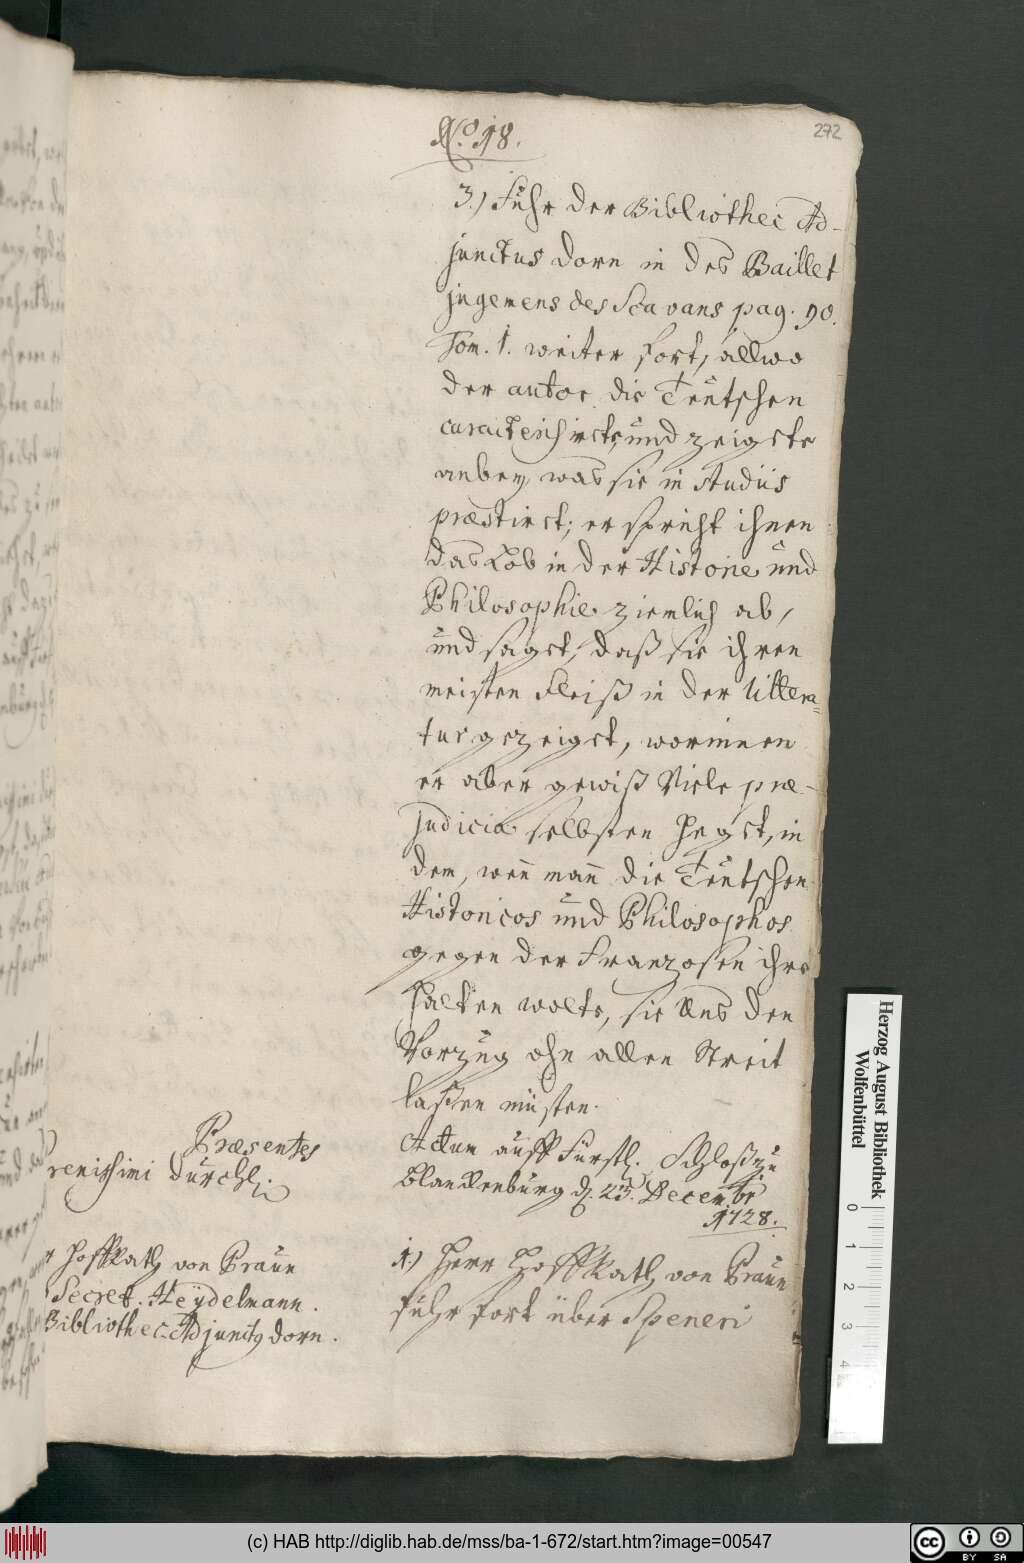 272
No. 18.
3.) Fuhr der Bibliothec Ad-
junctus Dorn in des Baillet
jugemens des Scavans pag. 90.
Tom. 1. weiter fort, allwo
der autor die Teutschen
caracterisirete, und zeigete
anbey, was sie in studiis
præstiret; er spricht ihnen
das Lob in der Historie und
Philosophie ziemlich ab,
und saget, daß sie ihren
meisten Fleiß in der Littera=
tur gezeiget, worinnen
er aber gewiß Viele præ-
judicia selbsten heget, in
dem, wen̄ man̄ die Teutschen
Historicos und Philosophos
gegen der Franzosen ihre
halten wolte, sie Uns den
Vorzug ohn allen Streit
laßen müsten.
Præsentes
renissimi Durchl.
r Hoffrath von Praun
Secret. Heÿdelmann.
Bibliothec. Adjunctꝰ Dorn.
Actum auff Fürstl. Schloß zu
Blanckenburg d. 23. Decembr
1728.
1.) Herr Hoffrath von Praun
fuhr fort über Speneri
Herzog August Bibliothek
Wolfenbüttel
0
1
2
3
4
(c) HAB http://diglib.hab.de/mss/ba-1-672/start.htm?image=00547
cc
BY SA